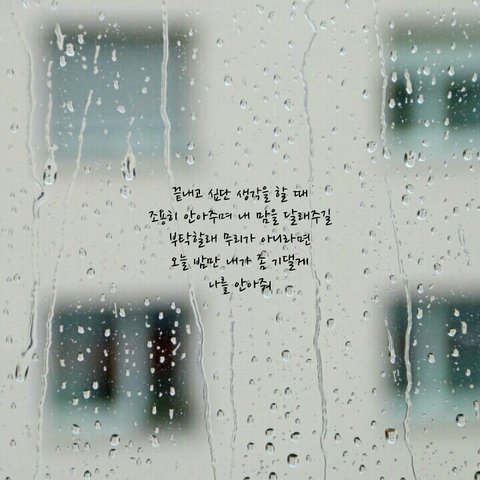 끝내고 싶단 생각을 할 때
조용히 안아주며 내 맘을 달래주길
부탁할래 무리가 아니라면
오늘 밤만 내가 좀 기댈게
나를 안아줘